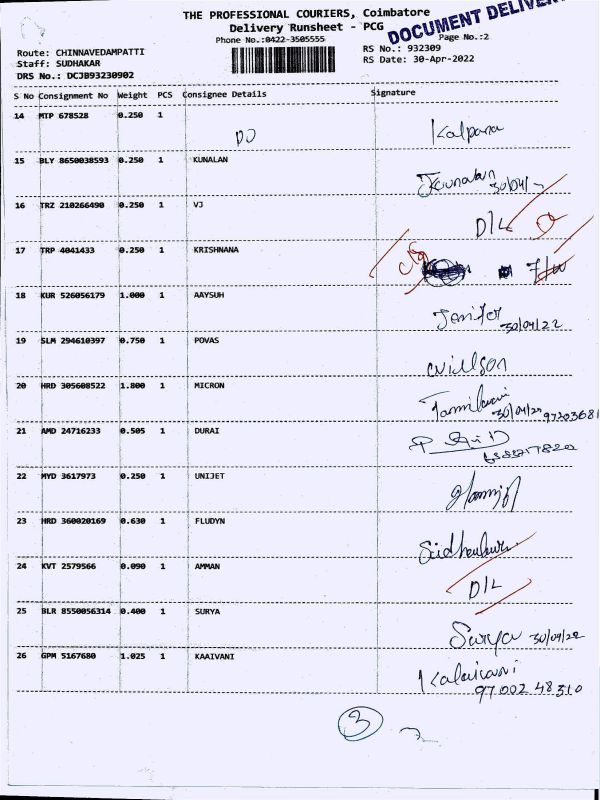 THE PROFESSIONAL COURIERS, Coimbatore
Delivery Runsheet - PCG
DOCUMENT DELIVER
Phone No.:0422-3505555
Page No.:2
Route: CHINNAVEDAMPATTI
RS No.: 932309
Staff: SUDHAKAR
RS Date: 30-Apr-2022
DRS No.: DCJB93230902
S No Consignment No Weight PCS Consignee Details Signature
14 MTP 678528 0.250 1 DO Kalpana
15 BLY 8650038593 0.250 1 KUNALAN
30/04/
16 TRZ 210266490 0.250 1 VJ D/L
17 TRP 4041433 0.250 1 KRISHNANA
18 KUR 526056179 1.000 1 AAYSUH Jenifer
30/04/22
19 SLM 294610397 0.750 1 POVAS
20 HRD 305608522 1.800 1 MICRON
21 AMD 24716233 0.505 1 DURAI
22 MYD 3617973 0.250 1 UNIJET
23 HRD 360020169 0.630 1 FLUDYN
24 KVT 2579566 0.090 1 AMMAN D/L
25 BLR 8550056314 0.400 1 SURYA Surya 30/04/22
26 GPM 5167680 1.025 1 KAAIVANI Kalaivani
97002 48310
3